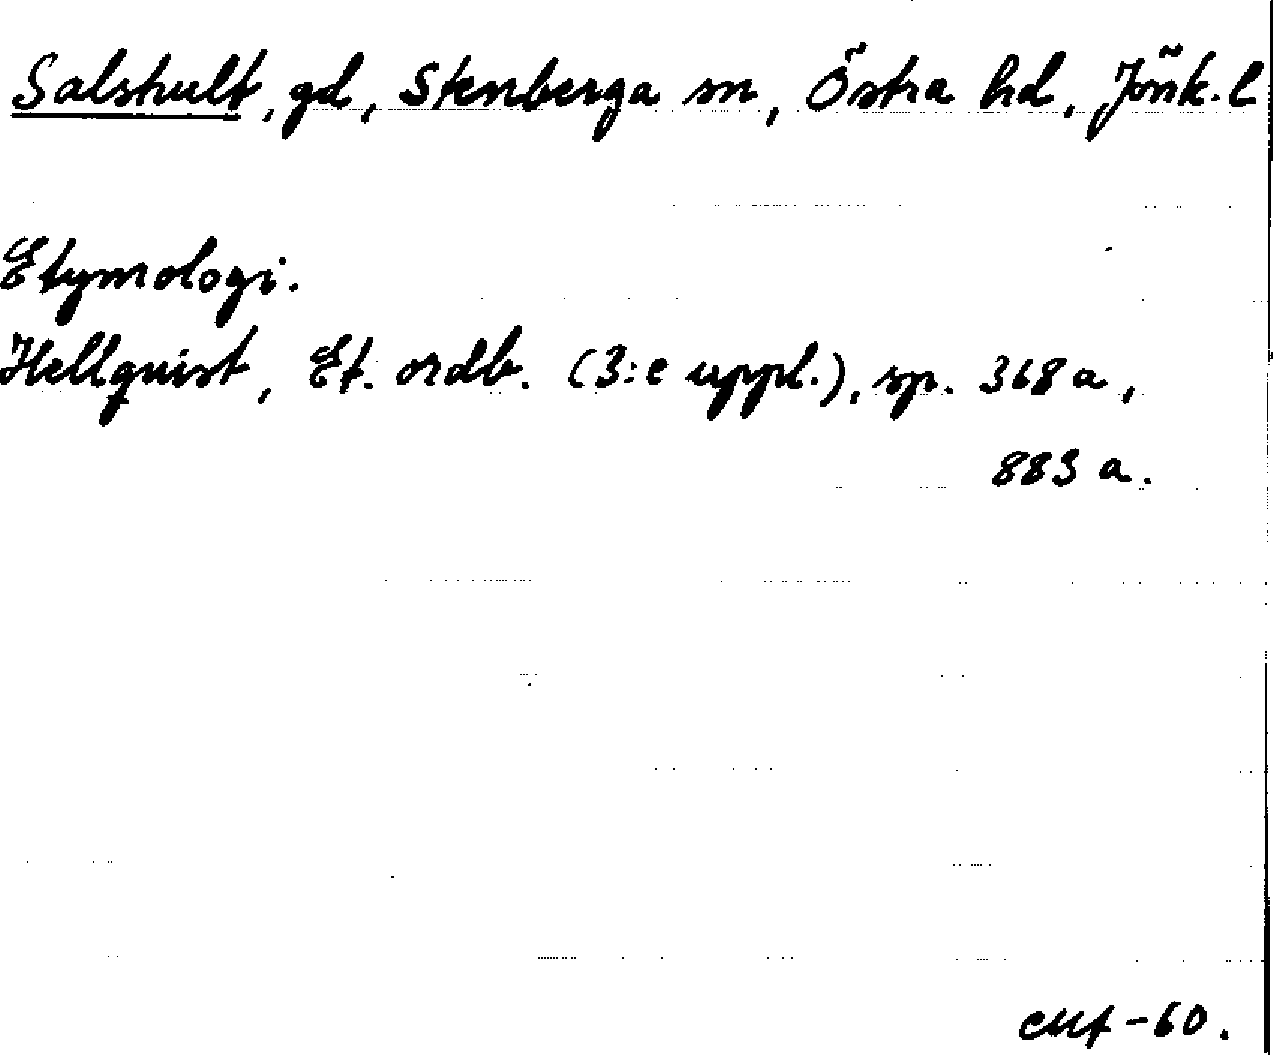 Salshult, gd, Stenberga sn, Östra hd, Jönk. l
Etymologi.
Hellquist, Et. ordb. (3:e uppl.), sp. 368 a,
883 a.
-60.